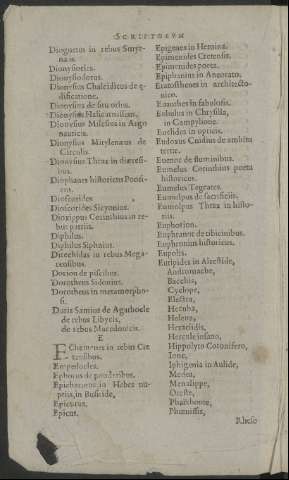 SCRIPTORVM
Diogenes in rebus Smyr-
næis.
Dionysiocles.
Dionysiodorus.
Dionysius Chalcidicus de
dificatione.
Dionysius de situ orbis.
Dionysius Halicarnasseus.
Dionysius Milesius in Argo
nauticis.
Dionysius Mitylenæus de
Circulo.
Dionysius Thrax in
Diophanes historicus Ponti-
cus.
Dioscorides
Dioscorides Sicyonius.
Dioxippus Corinthius in re-
bus patriis.
Diphilus.
Diphilus Siphnius.
Ditechidas in rebus Mega-
rensibus.
Dorion de piscibus.
Dorotheus Sidonius.
Dorotheus in metamorpho-
si.
Duris Samius de Agathocle
de rebus Libycis,
de rebus Macedonicis.
E
EChemenes in rebus Cre
tensibus.
Empedocles.
Ephorus de ponderibus.
Epicharmus in Hebes nu-
ptiis, in Busiride,
Epicurus.
Epicus.
Epigenes in Hermina.
Epimenides Cretensis.
Epimenides poeta.
Epiphanius in Ancorato.
Eratosthenes in architecto-
nico.
Euanthes in fabulosis.
Eubulus in Chrysilla,
in Campylione.
Euclides in opticis.
Eudoxus Cnidius de ambitu
terræ.
Euenor de fluminibus.
Eumelus Corinthius poeta
historicus.
Eumelus
Eumolpus de sacrificiis.
Eumolpus Thrax in histo-
riis.
Euphorion.
Euphranor de tibicinibus.
Euphronius historicus.
Eupolis.
Euripides in Alcestide,
Andromache,
Bacchis,
Cyclope,
Electra,
Hecuba,
Helena,
Heraclidis,
Hercule insano,
Hippolyto Coronifero,
Ione,
Iphigenia in Aulide,
Medea,
Menalippe,
Oreste,
Phaethonte,
Phœnissis,
Rheso